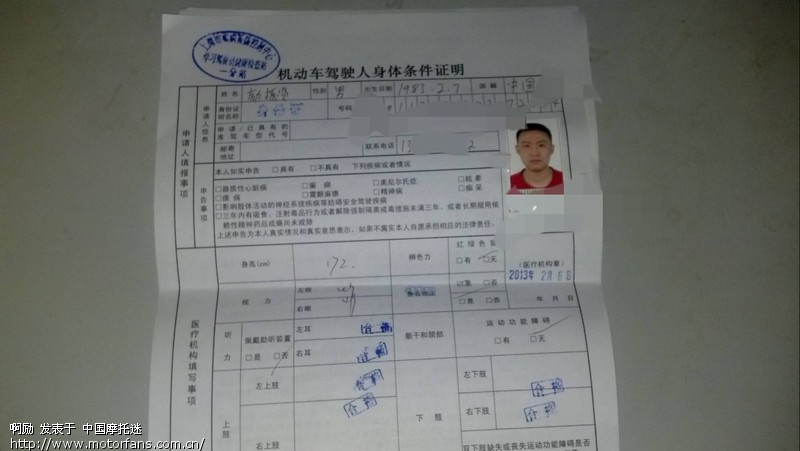 机动车驾驶人身体条件证明
申请人填报事项
申请人信息
姓名 性别 男 出生日期 1983-2-7 国籍 中国
身份证明名称 号码
申请/已具有的准驾车型代号
邮寄地址 联系电话 13 2
申告事项
本人如实申告 □具有 □不具有 下列疾病或者情况
□器质性心脏病 □癫痫 □美尼尔氏症 □眩晕
□癔病 □震颤麻痹 □精神病 □痴呆
□影响肢体活动的神经系统疾病等妨碍安全驾驶疾病
□三年内有吸食、注射毒品行为或者解除强制隔离戒毒措施未满三年，或者长期服用依
赖性精神药品成瘾尚未戒除
上述申告为本人真实情况和真实意思表示，如果不属实本人自愿承担相应的法律责任。
医疗机构填写事项
身高(cm) 172 辨色力 红绿色盲
□有 □无
(医疗机构章)
2013年 2月 6日
年 月 日
视力 左眼 □是 □否
右眼 □是 □否
听力 佩戴助听装置 □是 □否
左耳 合格
右耳 合格
躯干和颈部 运动功能障碍
□有 □无
上肢 左上肢 合格
右上肢 合格
下肢 左下肢 合格
右下肢 合格
双下肢缺失或丧失运动功能障碍是否
啊励 发表于 中国摩托迷
http://www.motorfans.com.cn/